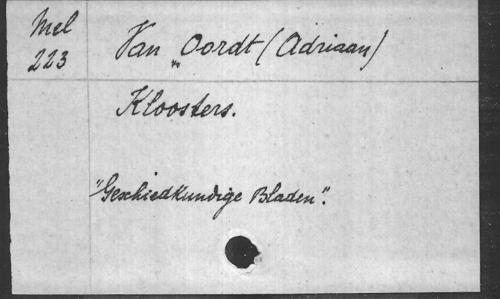 Mel
223
Van Oordt (Adriaan)
Kloosters.
"Geschiedkundige Bladen".